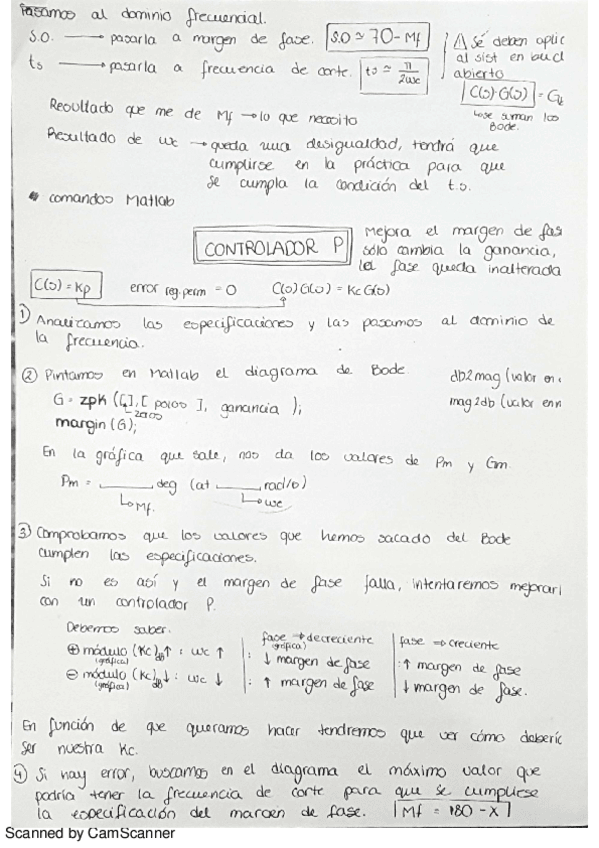 Pasamos al dominio frecuencial.
S.O. → pasarla a margen de fase. S.O ≃ 70-Mf
ts → pasarla a frecuencia de corte. ts ≃ π/2wc
⚠ Sé deben aplic
al sist en bucl
abierto
C(s)·G(s) = G
se suman los
Bode.
Resultado que me de Mf → lo que necesito
Resultado de wc → queda una desigualdad, tendrá que
cumplirse en la práctica para que
se cumpla la condición del t.s.
* comandos Matlab
CONTROLADOR P
Mejora el margen de fas
sólo cambia la ganancia,
la fase queda inalterada
C(s) = Kp error reg.perm = 0 C(s)G(s) = KcG(s)
1) Analizamos las especificaciones y las pasamos al dominio de
la frecuencia.
2) Pintamos en Matlab el diagrama de Bode.
G = zpk ([,],[ polos ], ganancia );
zeros
margin (G);
db2mag (valor en
mag2db (valor en
En la gráfica que sale, nos da los valores de Pm y Gm
Pm = ____ deg (at ____ rad/s)
Mf. wc
3) Comprobamos que los valores que hemos sacado del Bode
cumplen las especificaciones.
Si no es así y el margen de fase falla, intentaremos mejorarl
con un controlador P.
Debemos saber.
fase → decreciente
(gráfica)
fase → creciente
⊕ módulo (Kc)dB ↑ : wc ↑ : ↓ margen de fase : ↑ margen de fase
(gráfica)
⊖ módulo (Kc)dB ↓ : wc ↓ : ↑ margen de fase ↓ margen de fase.
(gráfica)
En función de que queramos hacer tendremos que ver cómo deberíc
ser nuestra Kc.
4) Si hay error, buscamos en el diagrama el máximo valor que
podría tener la frecuencia de corte para que se cumpliese
la especificación del margen de fase. Mf = 180 - X
Scanned by CamScanner